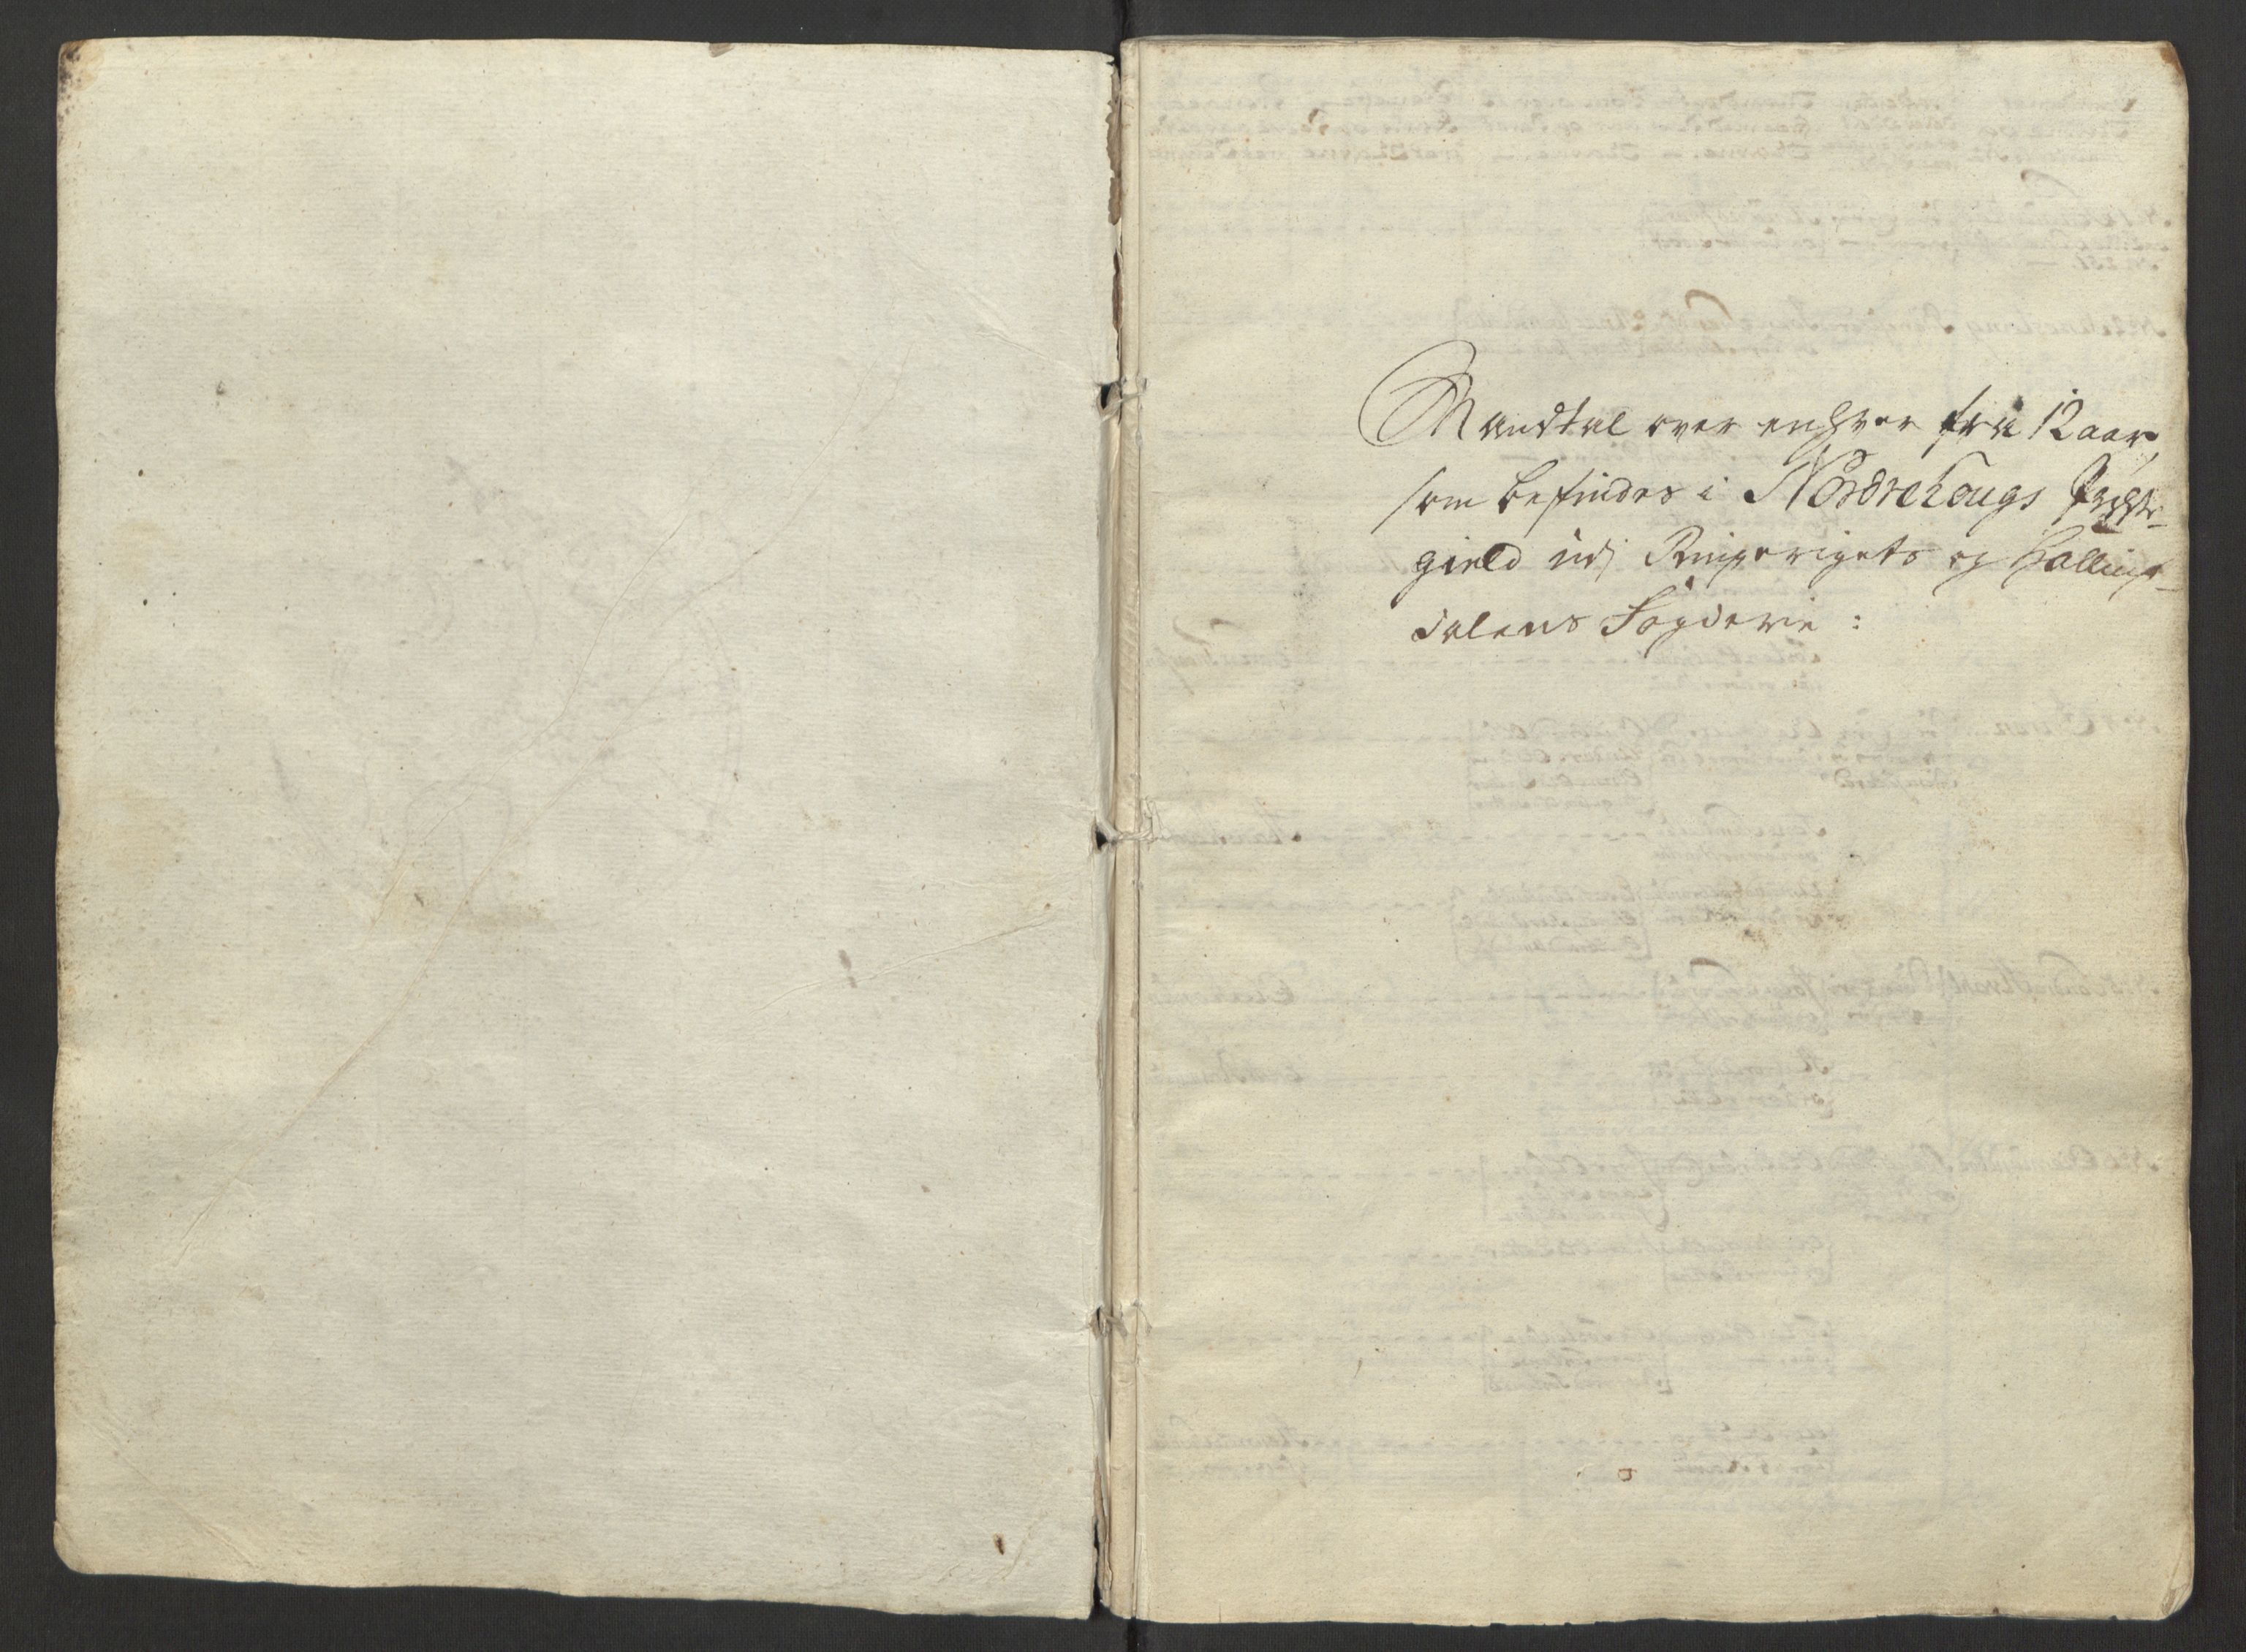 Mandtal over enhver fra 12 aar,
som befindes i Nordrehougs Præste-
gield udj Ringerigets og Halling-
dalens Fogderie: